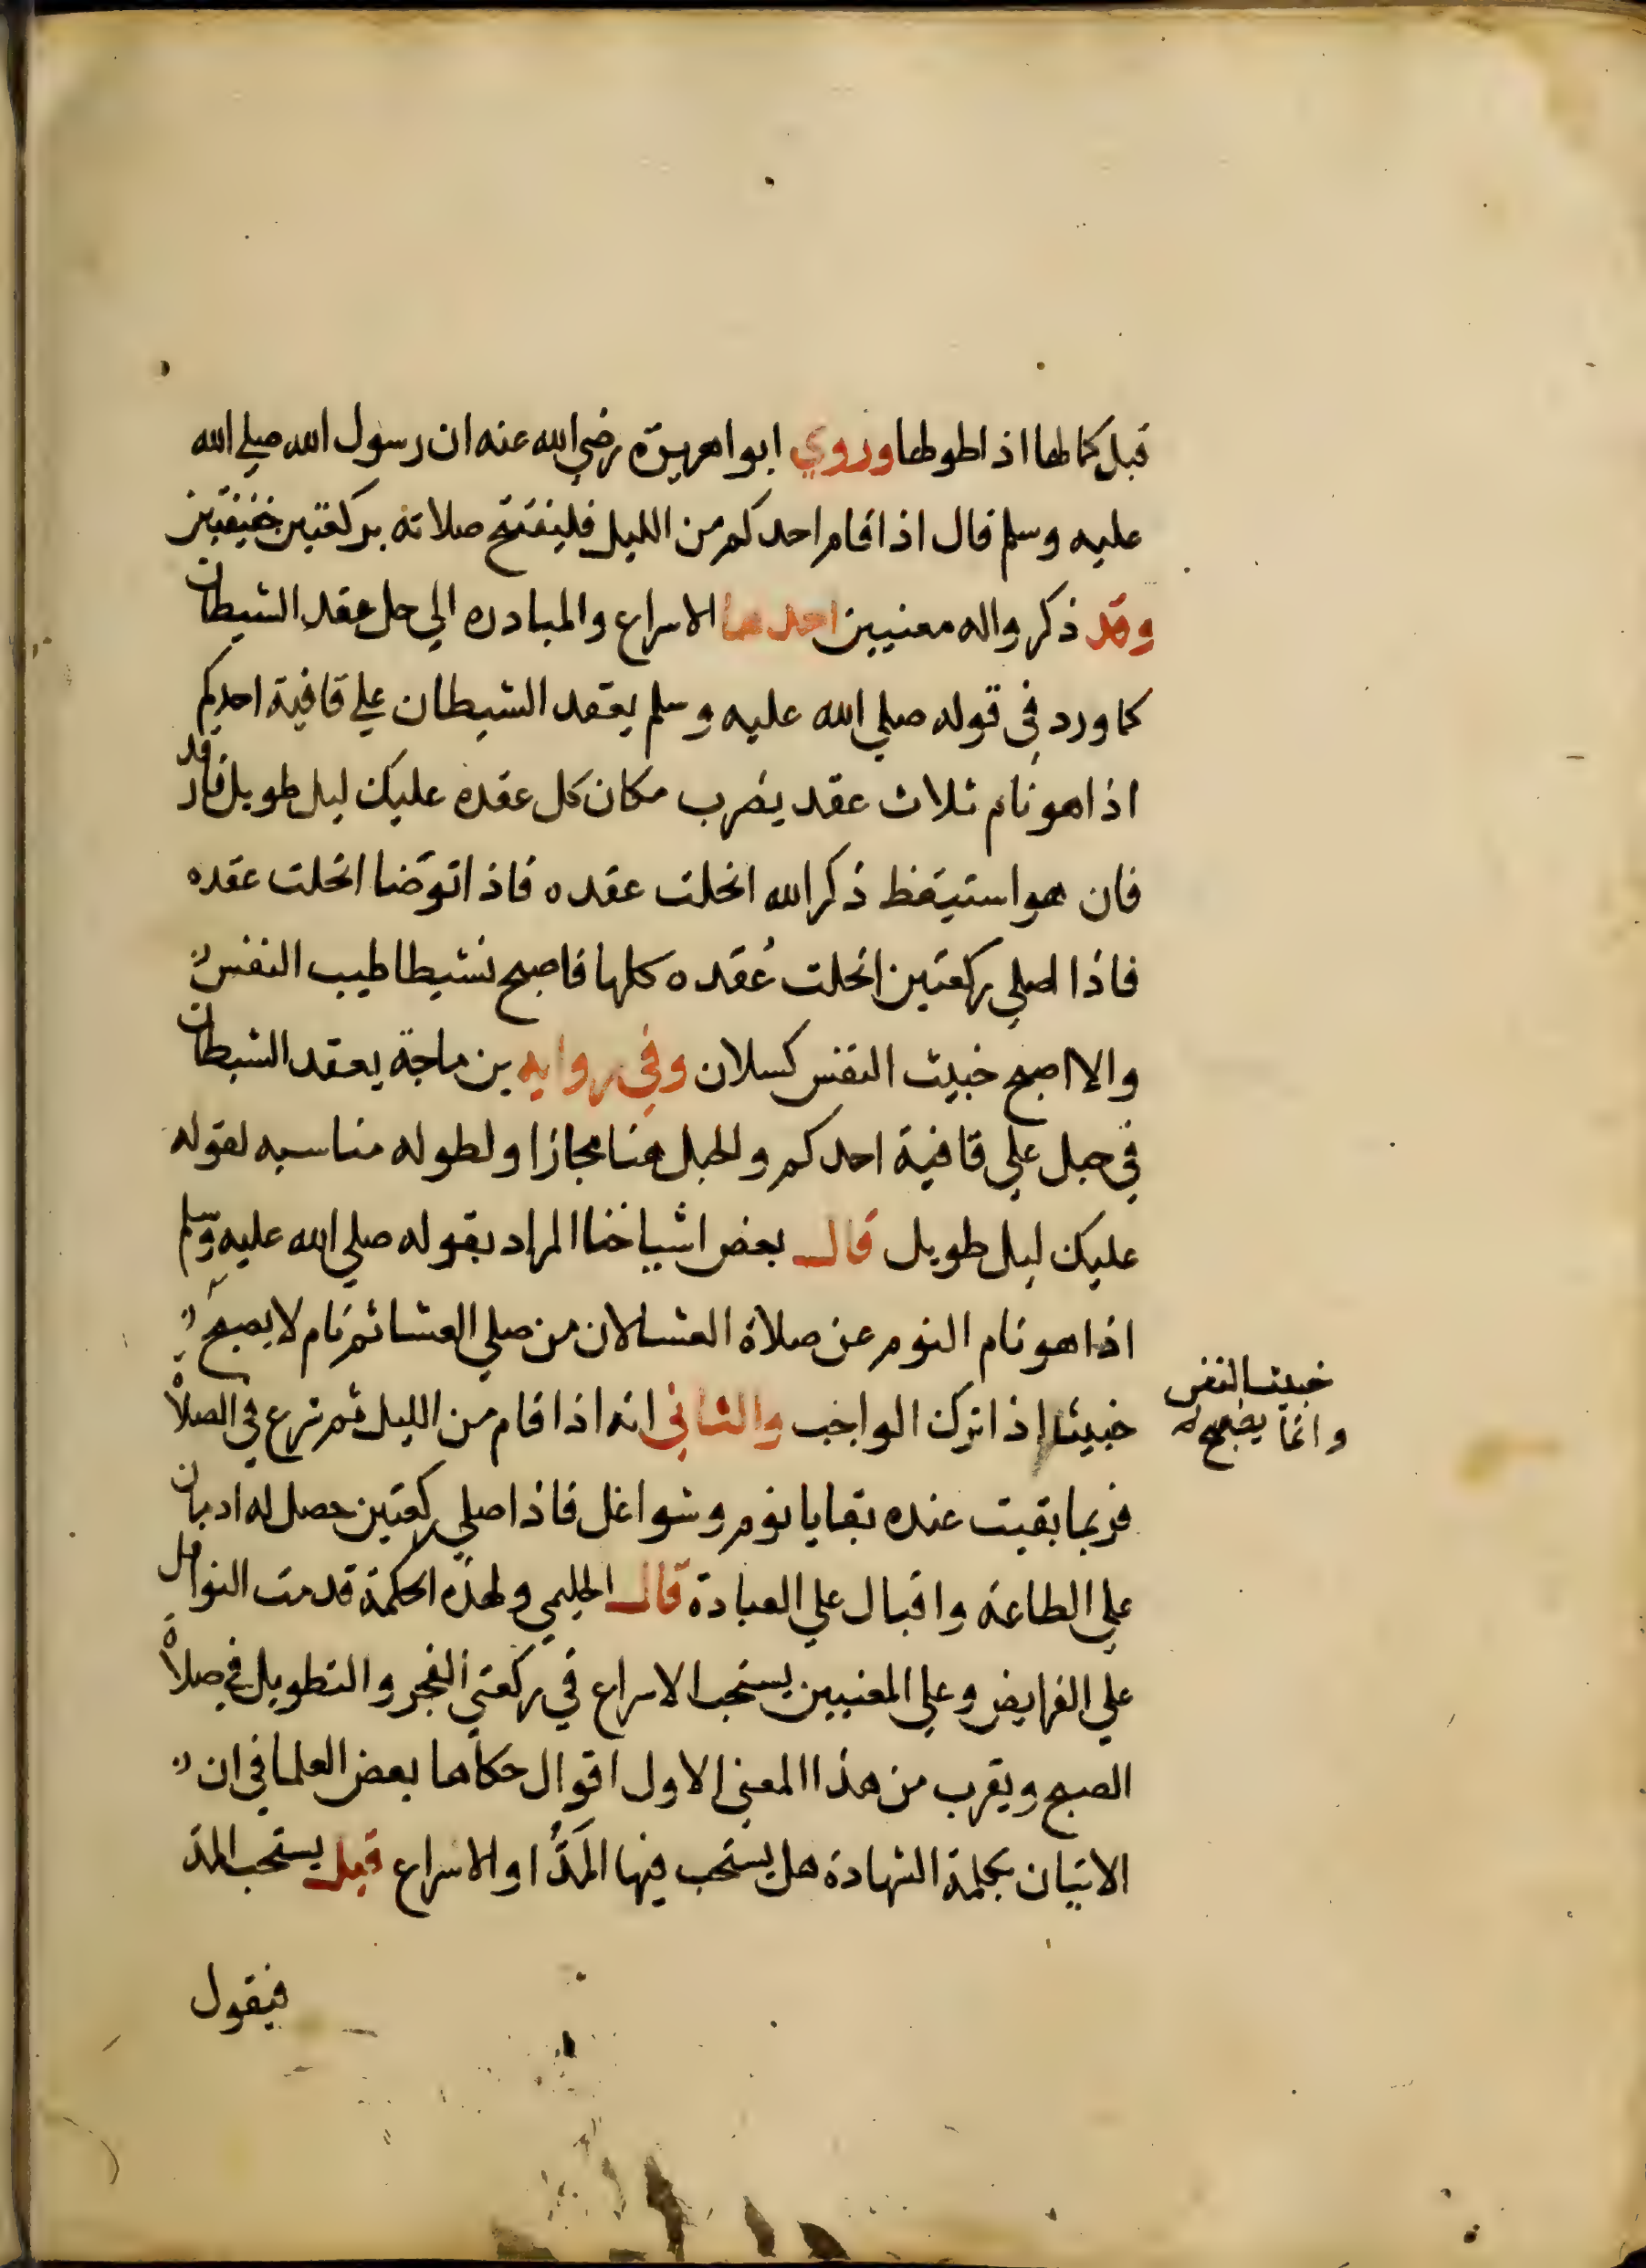 قبل كمالها اذا طولها وروي ابوا هريرة رضي الله عنه ان رسول الله صلي الله
عليه وسلم قال اذا قام احدكم من الليل فليفتتح صلاته بركعتين خفيفتين
وقد ذكر واله معنيين احدهما الاسراع والمبادره الي حل عقد الشيطان
كما ورد في قوله صلي الله عليه وسلم يعقد الشيطان علي قافية احدكم
اذا هو نام ثلاث عقد يضرب مكان كل عقده عليك ليل طويل فارقد
فان هو استيقظ ذكر الله انحلت عقده فاذا توضا انحلت عقده
فاذا صلي ركعتين انحلت عُقده كلها فاصبح نشيطا طيب النفس
والا اصبح خبيث النفس كسلان وفي روايه بن ماجة يعقد الشيطان
في حبل علي قافية احدكم والحبل هنا مجازا ولطوله مناسبه لقوله
عليك ليل طويل قال بعض اشياخنا المراد بقوله صلي الله عليه وسلم
اذا هو نام النوم عن صلاة العشا لان من صلي العشا ثم نام لا يصبح
خبيث النفس
وانما يصبح
خبيثا اذا ترك الواجب والثاني انه اذا قام من الليل ثم شرع في الصلاة
فربما بقيت عنده بقايا نوم وشواغل فاذا صلي ركعتين حصل له ادمان
علي الطاعة واقبال علي العبادة قال الحليمي ولهذه الحكمة قدمت النوافل
علي الفرايض وعلي المعنيين يستحب الاسراع في ركعتي الفجر والتطويل في صلاة
الصبح ويقرب من هذا المعني الاول اقوال حكاها بعض العلما في ان
الاتيان بكلمة الشهادة هل يستحب فيها المَدُّ او الاسراع قيل يستحب المد
فيقول